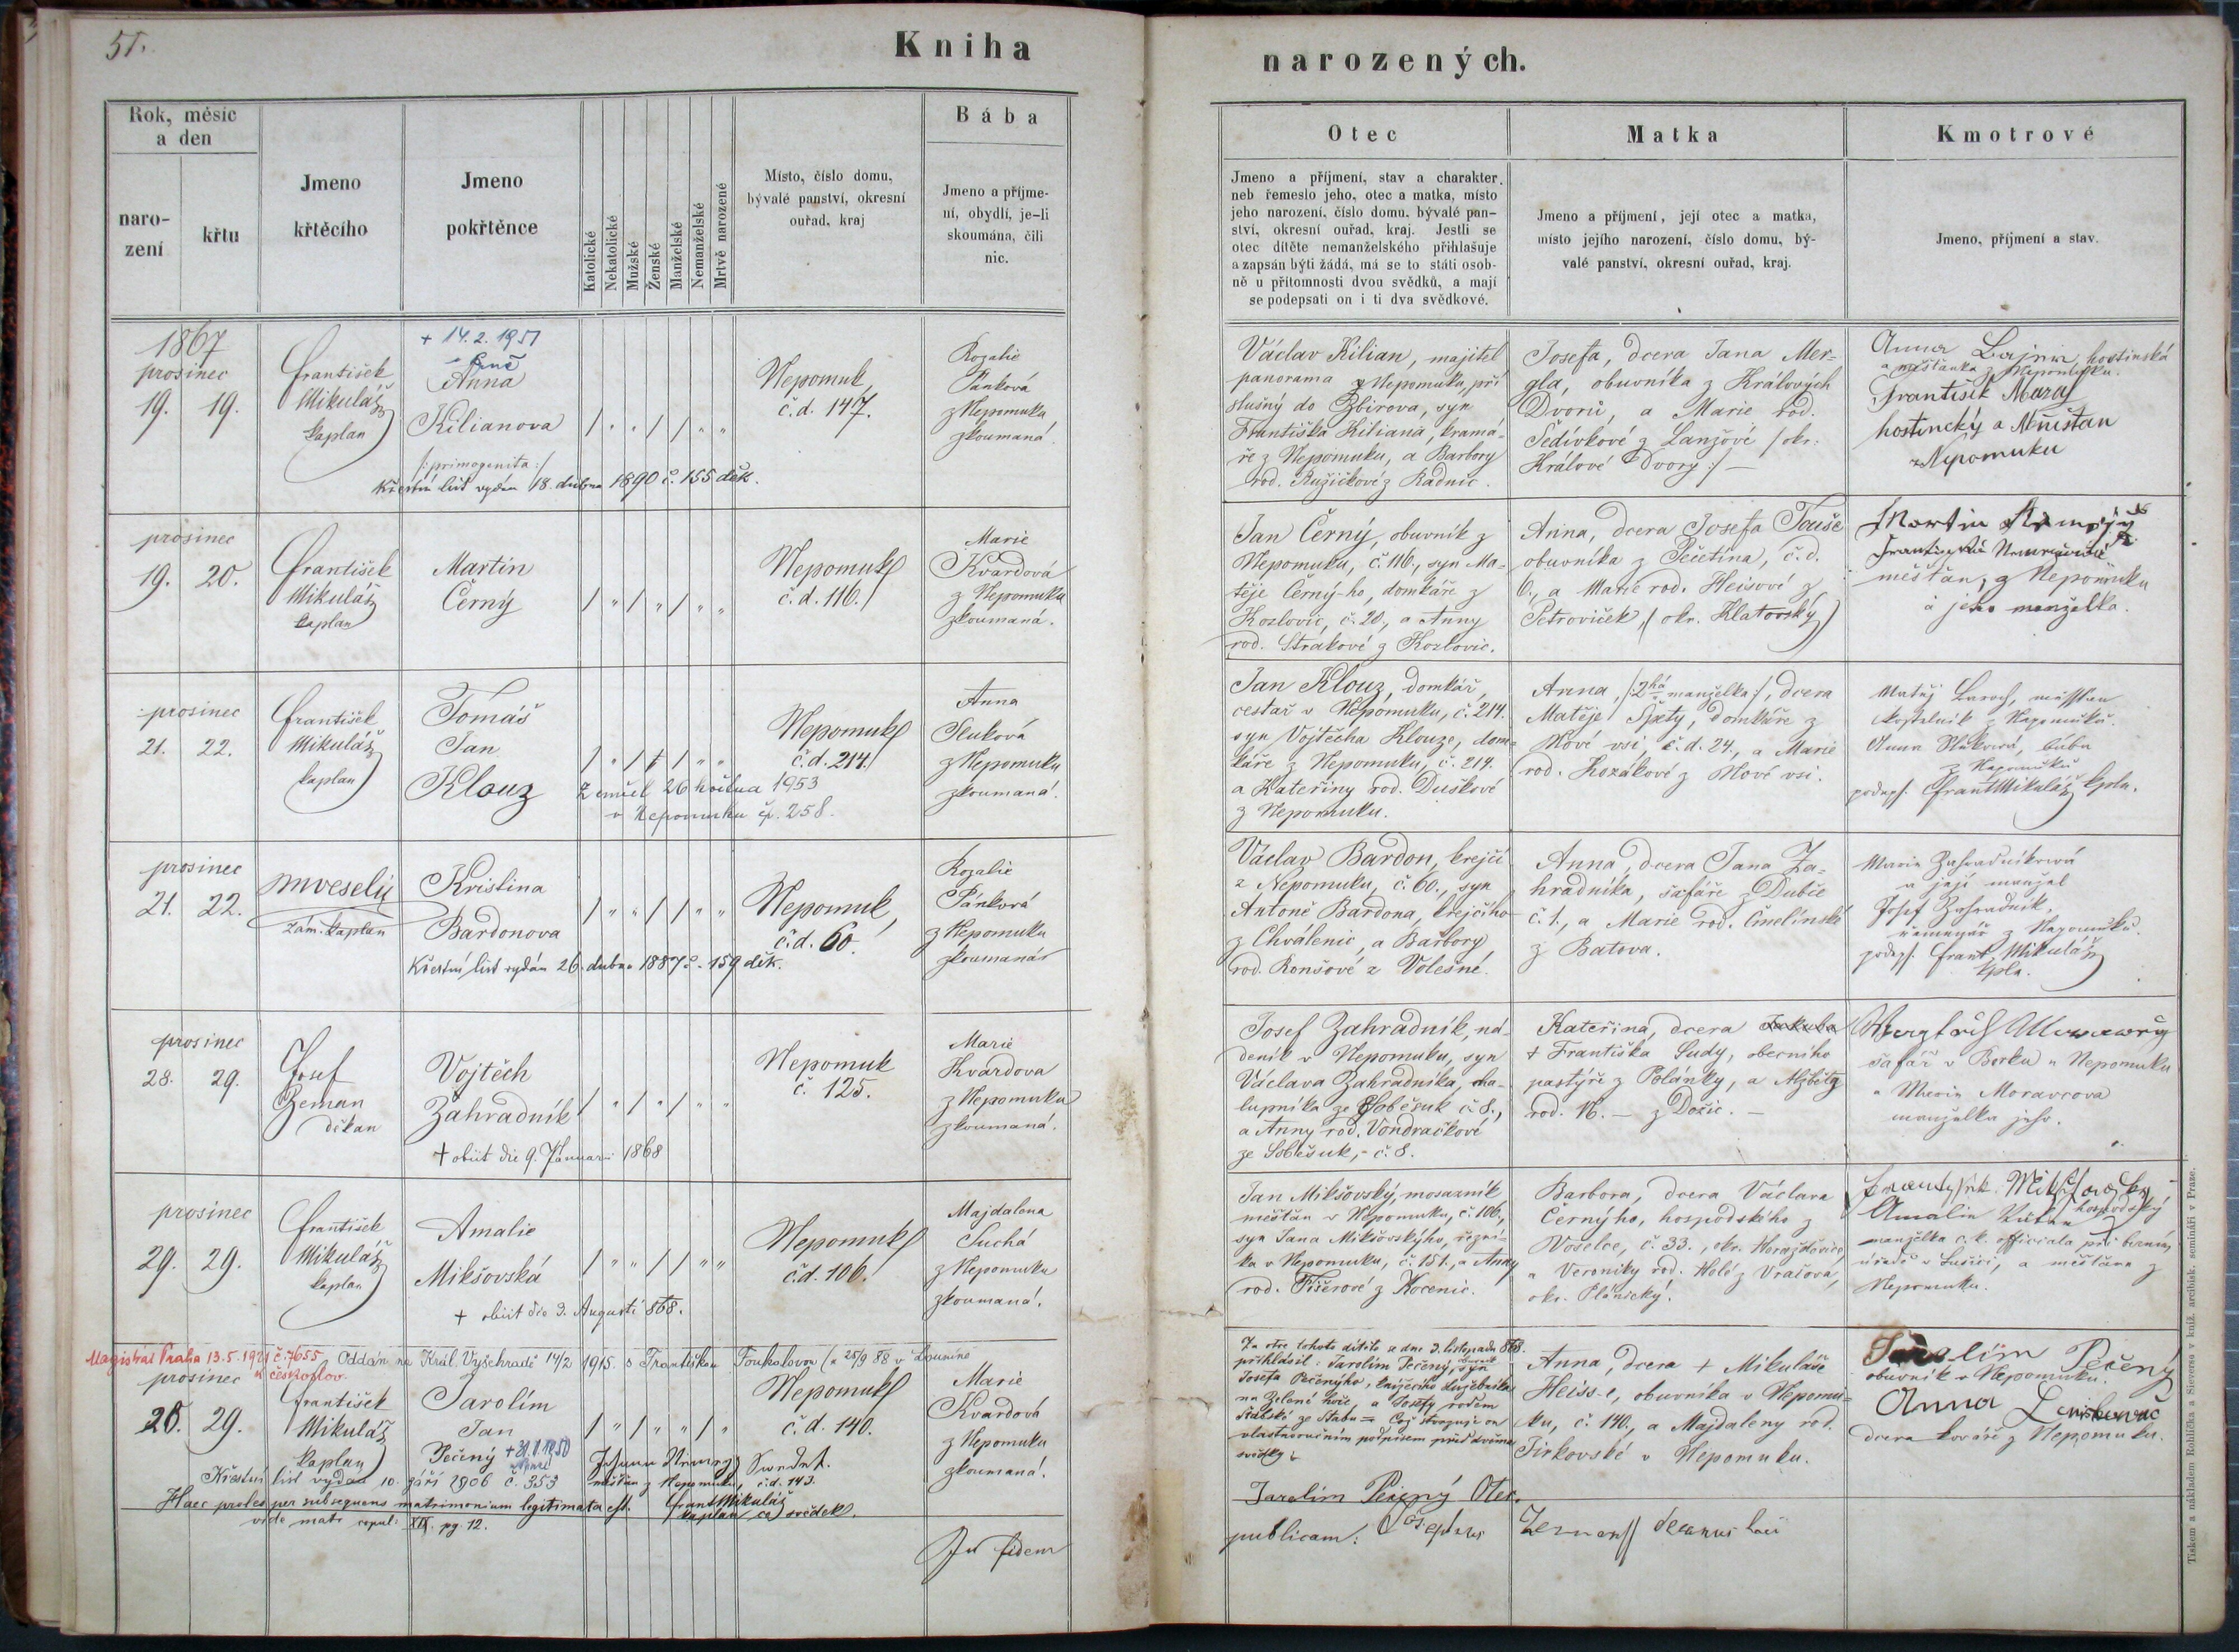 51.
Kniha
narozených.
Rok, měsíc
a den
naro-
zení
křtu
Jmeno
křtěcího
Jmeno
pokřtěnce
Katolické
Nekatolické
Mužské
Ženské
Manželské
Nemanželské
Mrtvě narozené
Místo, číslo domu,
bývalé panství, okresní
ouřad, kraj
Bába
Jmeno a příjme-
ní, obydlí, je-li
skoumána, čili
nic.
Otec
Jmeno a příjmení, stav a charakter
neb řemeslo jeho, otec a matka, místo
jeho narození, číslo domu, bývalé pan-
ství, okresní ouřad, kraj. Jestli se
otec dítěte nemanželského přihlašuje
a zapsán býti žádá, má se to státi osob-
ně u přítomnosti dvou svědků, a mají
se podepsati on i ti dva svědkové.
Matka
Jmeno a příjmení, její otec a matka,
místo jejího narození, číslo domu, bý-
valé panství, okresní ouřad, kraj.
Kmotrové
Jmeno, příjmení a stav.
1867
prosinec
19. 19.
František
Mikuláš
kaplan
+ 14. 2. 1951
Anna
Kilianova
/: primogenita :/
Křestní list vydán 18. dubna 1890 č. 155 děk.
Nepomuk,
č. d. 147.
Rozalie
Pánková
z Nepomuku
zkoumaná.
Václav Kilian, majitel
panorama z Nepomuka, pří
slušný do Zbirova, syn
Františka Kiliana, kramá-
ře z Nepomuku, a Barbory
rod. Růžičkové z Radnic.
Josefa, dcera Jana Mer-
gla, obuvníka z Králových
Dvorů, a Marie rod.
Šedívkové z Lanžové /okr:
Králové Dvory:/ —
Anna hostinská
a měšťanka z Nepomuku.
František Maraš
hostincký a Měšťan
z Nepomuku
prosinec
19. 20.
František
Mikuláš
kaplan
Martin
Černý
Nepomuk
č. d. 116.
Marie
Kvardová
z Nepomuku
zkoumaná.
Jan Černý, obuvník z
Nepomuku, č. 116., syn Ma-
těje Černý-ho, domkáře z
Kozlovic, č. 20., a Anny
rod. Strakové z Kozlovic.
Anna, dcera Josefa Touše
obuvníka z Pečetína, č. d.
6., a Marie rod. Heisové z
Petroviček, (okr. Klatovský)
Martin
měšťan, z Nepomuku
a jeho manželka.
prosinec
21. 22.
František
Mikuláš
kaplan
Tomáš
Jan
Klouz
Zemřel 26 května 1953
v Nepomuku čp. 258.
Nepomuk
č. d. 214.
Anna
Sluková
z Nepomuku
zkoumaná.
Jan Klouz, domkář,
cestář v Nepomuku, č. 214.
syn Vojtěcha Klouze, dom-
káře z Nepomuku, č. 214.
a Kateřiny rod. Duškové
z Nepomuku.
Anna, /:2há manželka:/, dcera
Matěje Špaty, domkáře z
Nové vsi, č. d. 24., a Marie
rod. Kozákové z Nové vsi.
Matěj měšťan
kostelník z Nepomuku.
Anna Sluková, bába
z Nepomuku
podeps. Frant Mikuláš kpln.
prosinec
21. 22.
MVeselý
zám. kaplan
Kristina
Bardonova
Křestní list vydán 26. dubna 1887 č. 159 děk.
Nepomuk,
č. d. 60.
Rozalie
Pánková
z Nepomuku
zkoumaná
Václav Bardon, krejčí
z Nepomuku, č. 60., syn
Antoně Bardona, krejčího
z Chválenic, a Barbory
rod. Ronšové z Volešné.
Anna, dcera Jana Za-
hradníka, šafáře z Dubče
č. 1., a Marie rod. Cmelínské
z Batova.
Marie Zahradníková
a její manžel
Josef Zahradník,
řemenář z Nepomuku.
podeps. Frant. Mikuláš
kpln.
prosinec
28. 29.
Josef
Zeman
děkan
Vojtěch
Zahradník
+ obiit die 9. Januarii 1868
Nepomuk
č. 125.
Marie
Kvardova
z Nepomuku
zkoumaná.
Josef Zahradník, ná-
deník v Nepomuku, syn
Václava Zahradníka, cha-
lupníka ze Soběsuk č. 8.,
a Anny rod. Vondračkové
ze Soběsuk, - č. 8.
Kateřina, dcera Jakuba
+ Františka Sudy, obecního
pastýře z Polánky, a Alžběty
rod. N. — z Dožic. —
šafář v Borku u Nepomuku
a Marie Moravcova
manželka jeho.
prosinec
29. 29.
František
Mikuláš
kaplan
Amalie
Mikšovská
+ obiit die 3. Augusti 868.
Nepomuk
č. d. 106.
Majdalena
Suchá
z Nepomuku
zkoumaná.
Jan Mikšovský, mosazník
měšťan v Nepomuku, č. 106.,
syn Jana Mikšovskýho, řezní-
ka v Nepomuku, č. 151., a Anny
rod. Fišerové z Kocenic.
Barbora, dcera Václava
Černýho, hospodského z
Voselce, č. 33., okr. Horažďovice,
a Veroniky rod. Holé z Vračová,
okr. Plánický.
Frantyšek Mikšovsky,
hospodský
Amalie
manželka c. k. officiala při berním
úřadě v Sušici, a měšťana z
Nepomuku.
Magistrát Praha 13. 5. 1921 č. 7655
Oddán na Král. Vyšehradě 14/2 1915 s Františkou Toukalovou (n 25/9 88 v Lounině
prosinec
28. 29.
František
Mikuláš
kaplan
Jarolím
Jan
Pečený
Křestní list vydán 10. září 1906 č. 353
Haec proles per subsequens matrimonium legitimata est.
vide matr copul: XIX. pg. 12.
měšťan z Nepomuku, č. d. 143.
Frant Mikuláš
kaplan co svědek.
Nepomuk
č. d. 140.
Marie
Kvardová
z Nepomuku
zkoumaná.
Za otce tohoto dítěte se dne 3. listopadu 868.
přihlásil: Jarolím Pečený, obuvník syn
Josefa Pečenýho, knížecího služebníka
na Zelené hoře, a Josefy rodem
Stabské ze Stabu = Což stvrzuje on
vlastnoručním podpisem před dvěma
svědky:
Jarolím Pečený Otec.
Anna, dcera + Mikuláše
Heiss-e, obuvníka v Nepomu-
ku, č. 140., a Majdaleny rod.
Jirkovské v Nepomuku.
Jarolím Pečený
obuvník v Nepomuku.
Anna
dcera kováře z Nepomuku.
In fidem
publicam: Josephus Zeman decanus loci
Tiskem a nákladem Rohlíčka a Sieverse v kníž. arcibisk. semináři v Praze.